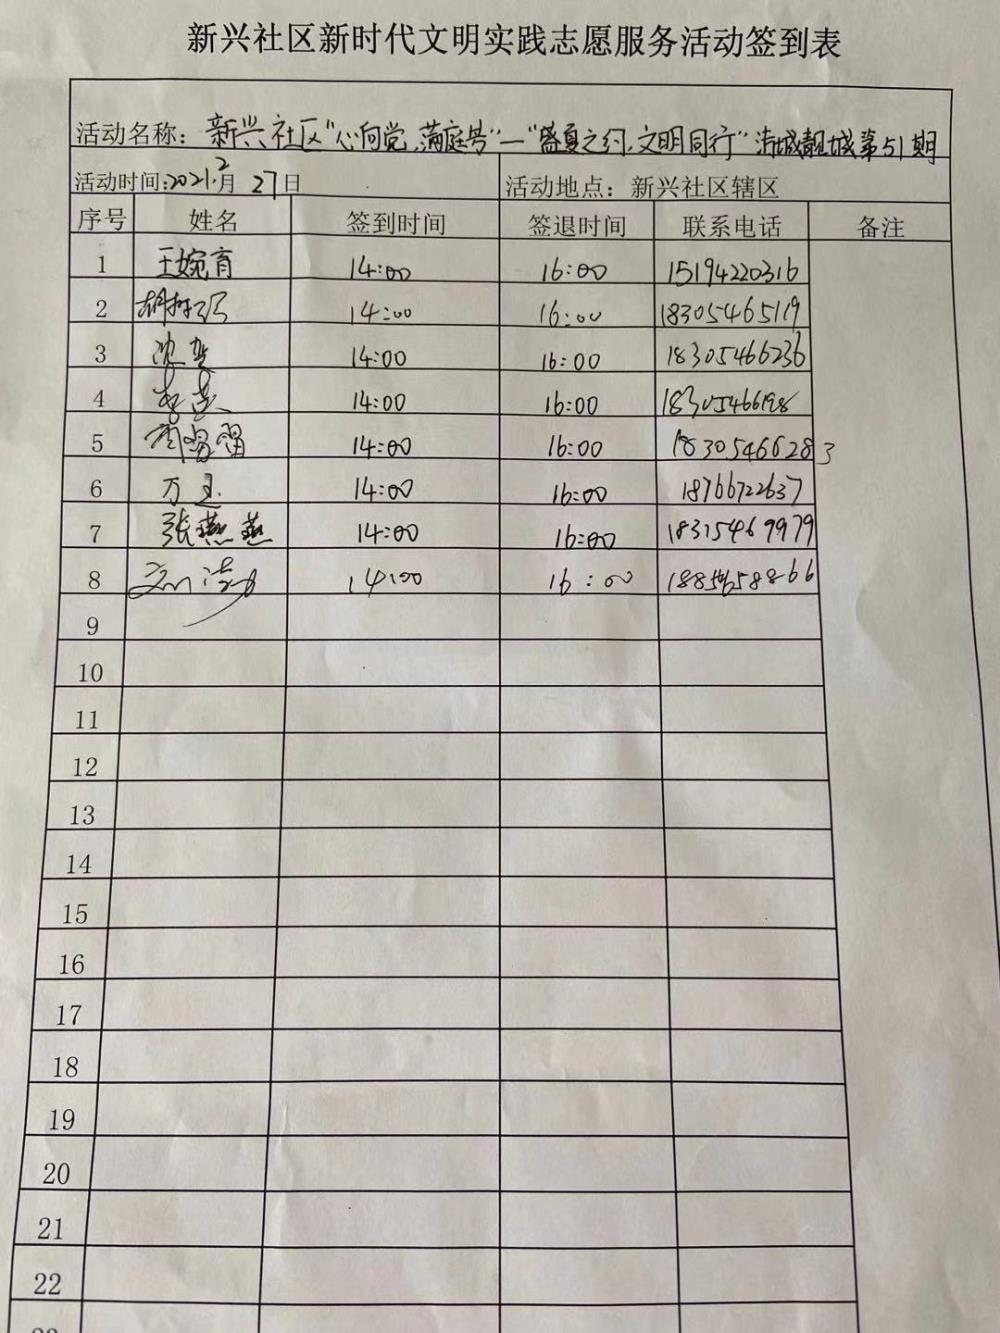 新兴社区新时代文明实践志愿服务活动签到表
活动名称：新兴社区"心向党.满庭芳"—"盛夏之约.文明同行"清城靓城第51期
活动时间:2021.2月27日 活动地点：新兴社区辖区
序号 姓名 签到时间 签退时间 联系电话 备注
1 王婉育 14:00 16:00 15194220316
2 14:00 16:00 18305465119
3 14:00 16:00 18305466236
4 14:00 16:00 18305466198
5 14:00 16:00 18305466283
6 万玉 14:00 16:00 18766722637
7 张燕燕 14:00 16:00 18315469979
8 14:00 16:00
9
10
11
12
13
14
15
16
17
18
19
20
21
22